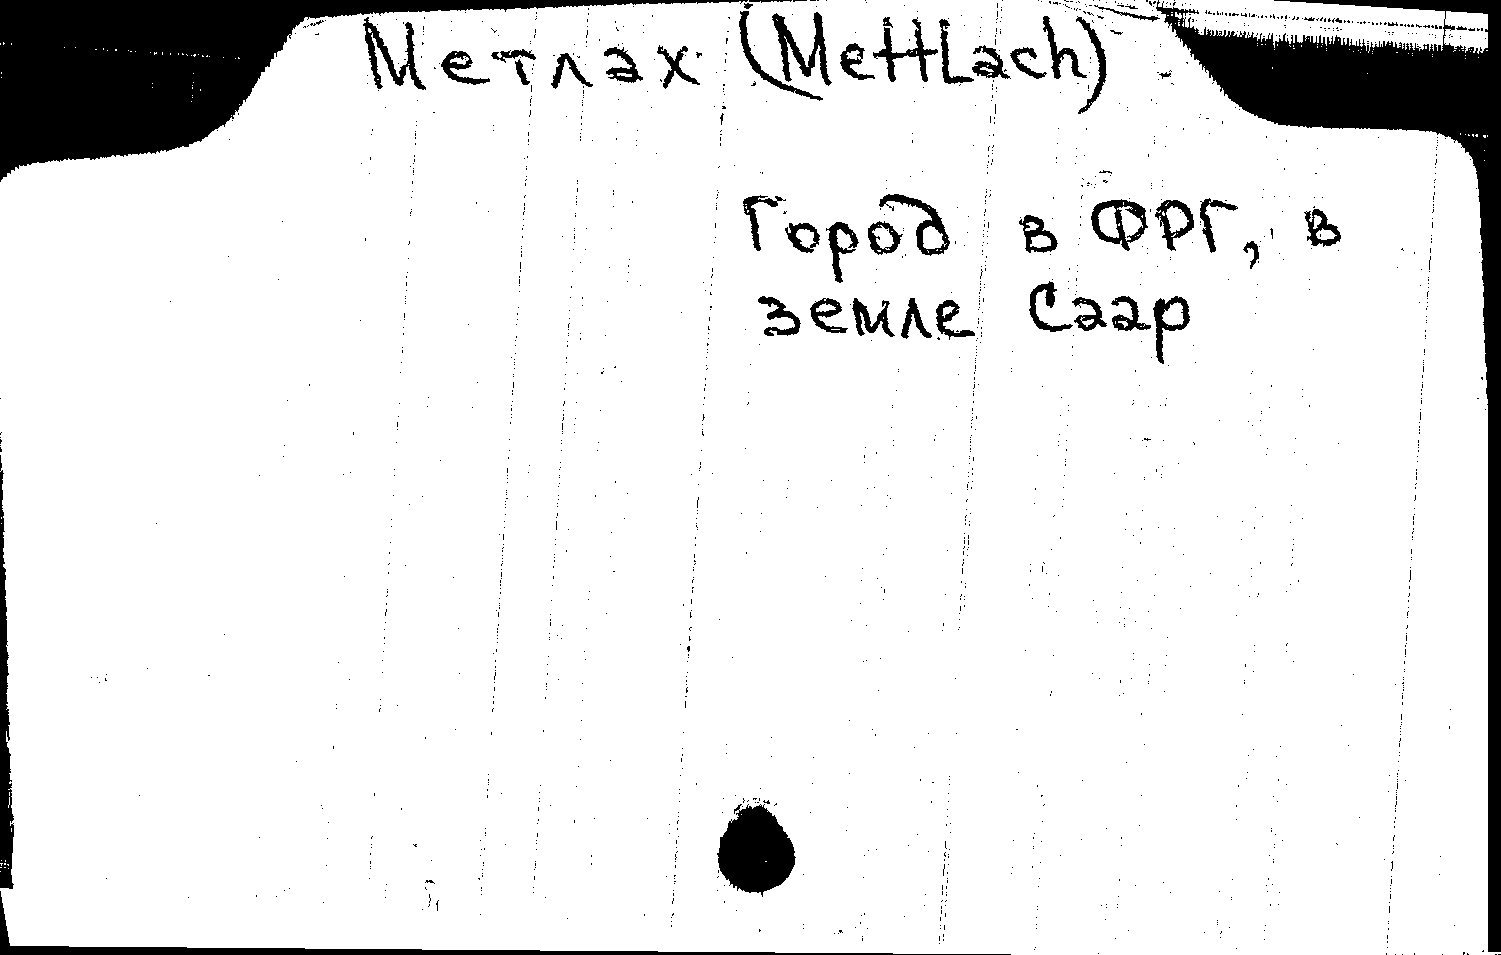 Метлах (Mettlach)
Город в ФРГ, в
земле Саар